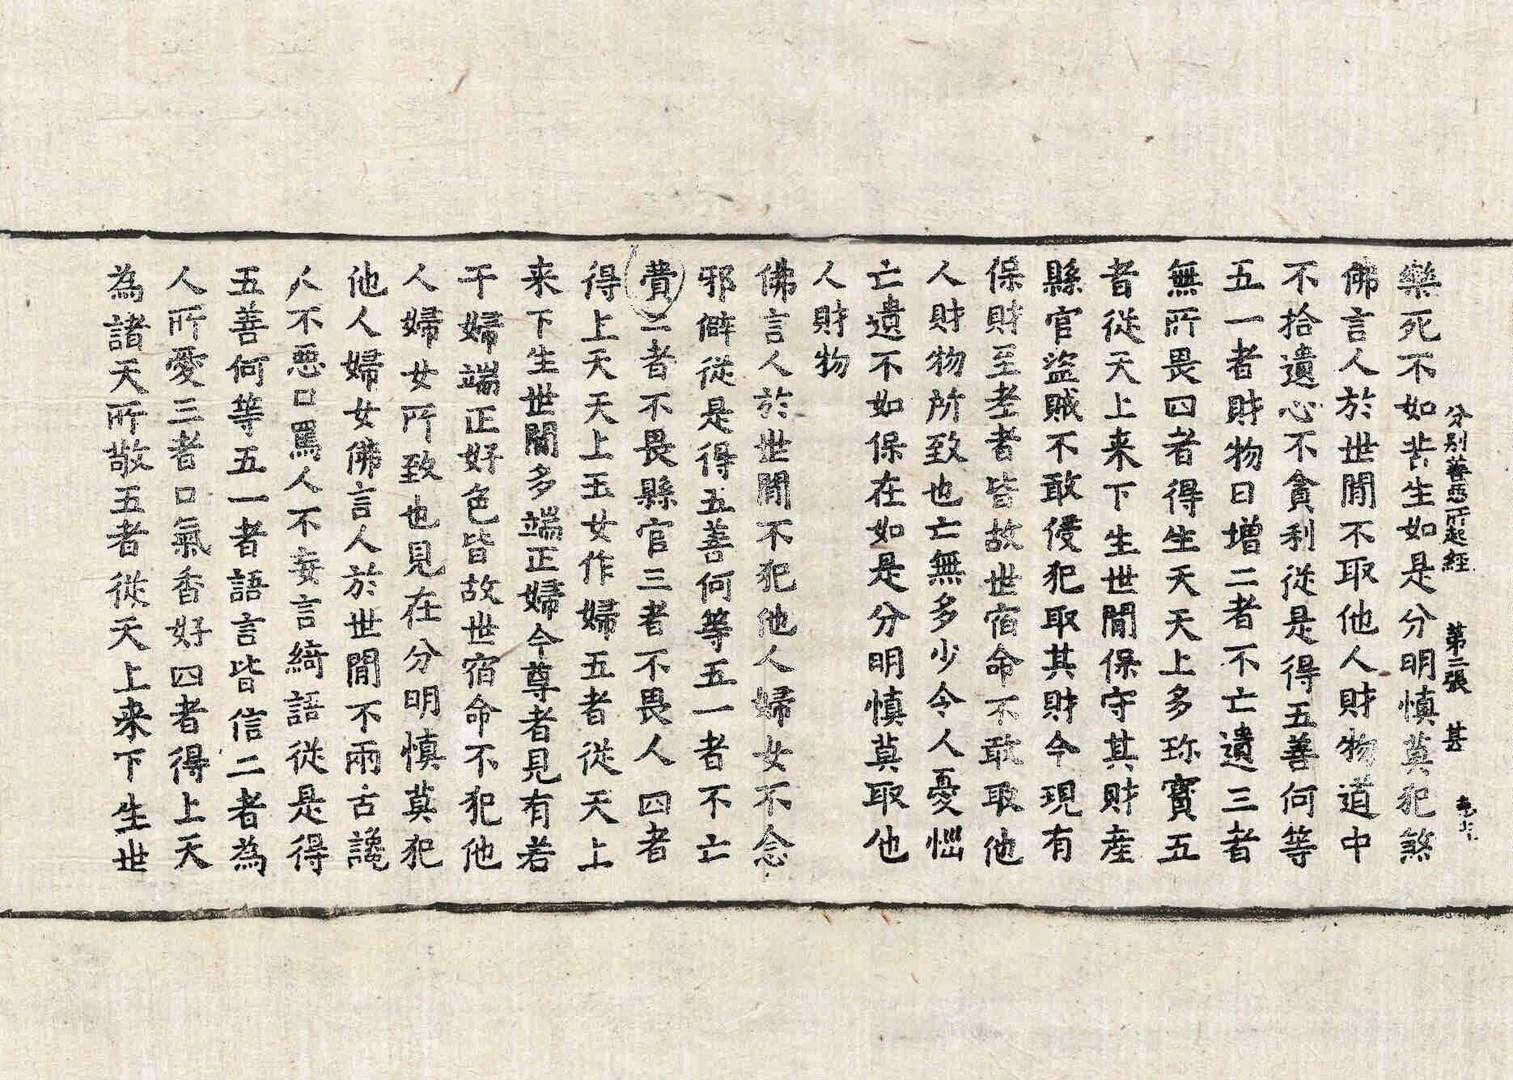 分别善惡所起經　第三張　甚
樂死不如苦生如是分明慎莫犯煞
佛言人於世閒不取他人財物道中
不拾遺心不貪利從是得五善何等
五一者財物日增二者不亡遺三者
無所畏四者得生天天上多珎寳五
者從天上来下生世閒保守其財産
縣官盜賊不敢侵犯取其財今現有
保財至老者皆故世宿命不敢取他
人財物所致也亡無多少令人憂惱
亡遺不如保在如是分明慎莫取他
人財物
佛言人於世閒不犯他人婦女不念
邪僻從是得五善何等五一者不亡
費二者不畏縣官三者不畏人四者
得上天天上玉女作婦五者從天上
来下生世閒多端正婦今尊者見有若
干婦端正好色皆故世宿命不犯他
人婦女所致也見在分明慎莫犯
他人婦女佛言人於世閒不兩舌讒
人不惡口罵人不妄言綺語從是得
五善何等五一者語言皆信二者為
人所愛三者口氣香好四者得上天
為諸天所敬五者從天上来下生世